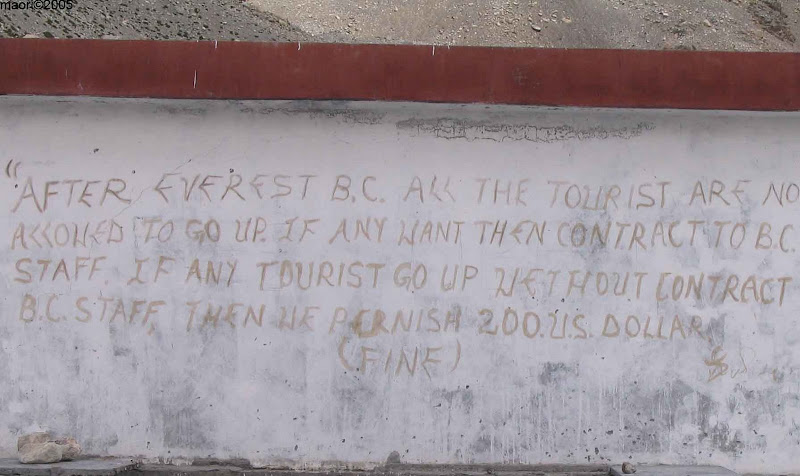 maori©2005
"AFTER EVEREST B.C. ALL THE TOURIST ARE NO
ALLOWED TO GO UP. IF ANY WANT THEN CONTRACT TO B.C.
STAFF. IF ANY TOURIST GO UP WETHOUT CONTRACT
B.C. STAFF, THEN HE PERNISH 200.U.S. DOLLAR
(FINE)